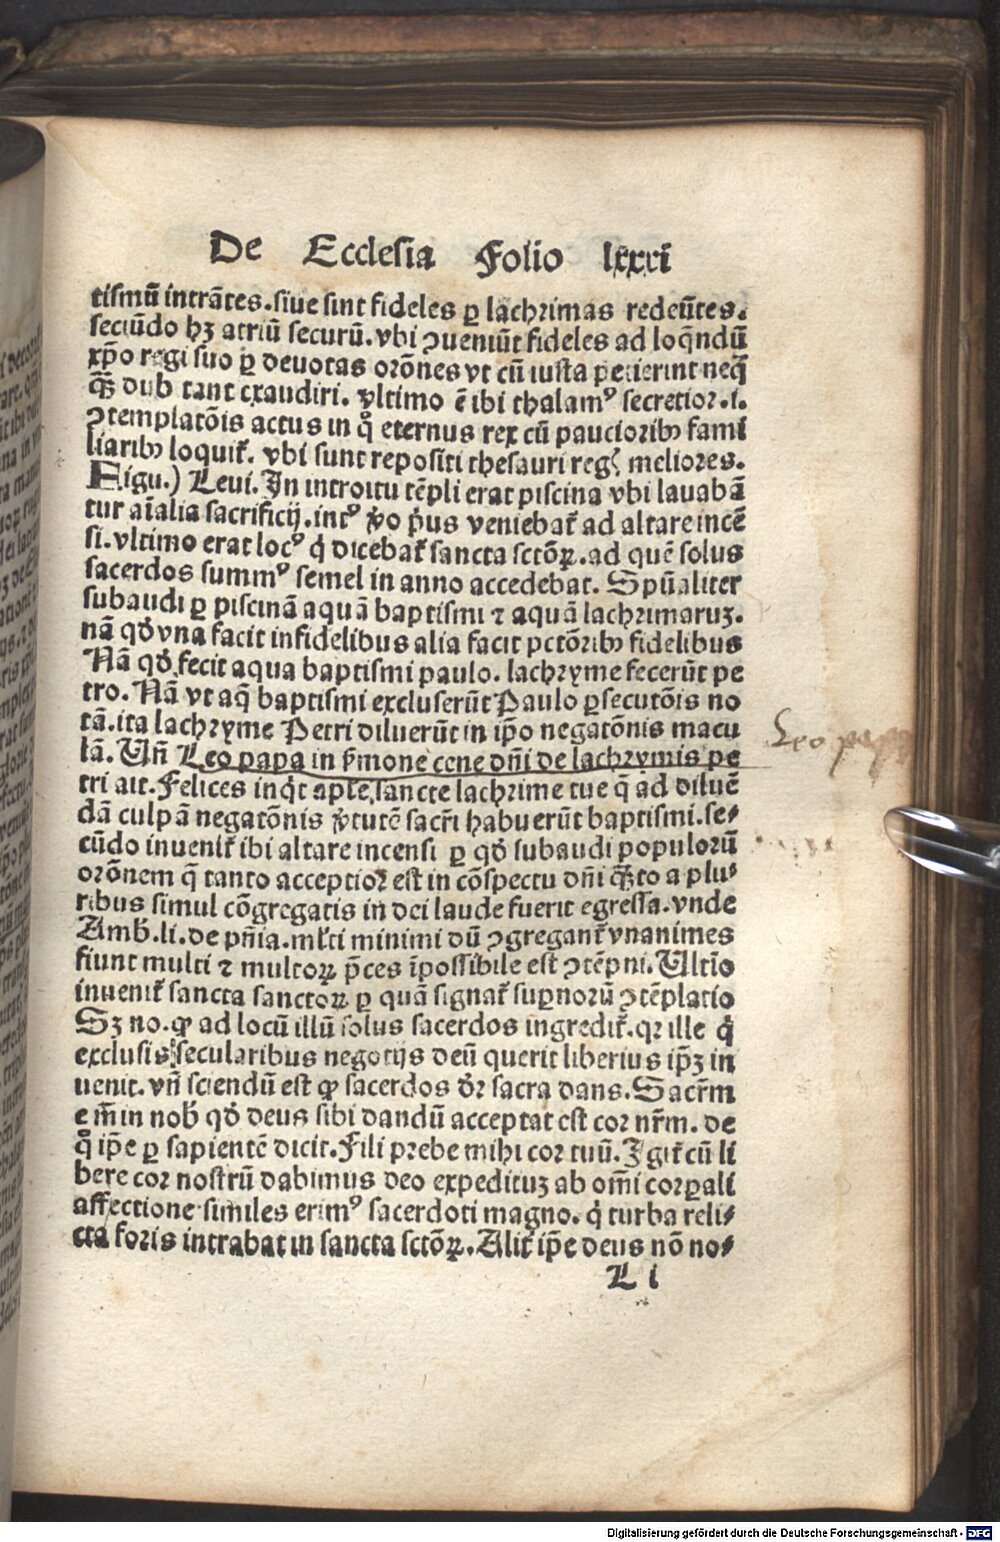 De Ecclesia Folio lxxxi
tismū intrātes. siue sint fideles ꝑ lachrimas redeūtes.
secūdo hꝫ atriū securū. vbi ↄueniūt fideles ad loq̄ndū
xp̄o regi suo ꝑ deuotas orōnes vt cū iusta petierint neq̄
q̄ꝫ dubitant exaudiri. vltimo ē ibi thalamꝰ secretior .i.
ↄtemplatōis actus in q̊ eternus rex cū pauciorib⁹ fami
liarib⁹ loquit᷑. vbi sunt repositi thesauri regꝭ meliores.
Figu.) Leui. In introitu tēpli erat piscina vbi lauabā
tur aīalia sacrificij. intꝰ v̊o pͥus veniebat᷑ ad altare incē
si. vltimo erat locꝰ qͥ dicebat᷑ sancta sctōꝝ. ad quē solus
sacerdos summꝰ semel in anno accedebat. Spūaliter
subaudi ꝑ piscinā aquā baptismi ⁊ aquā lachrimaruꝫ.
nā qđ vna facit infidelibus alia facit pctōrib⁹ fidelibus
Nā qđ fecit aqua baptismi paulo. lachryme fecerūt pe
tro. Nā vt aq̄ baptismi excluserūt Paulo ꝑsecutōis no
tā. ita lachryme Petri diluerūt in ip̄o negatōnis macu
lā. Vn̄ Leo papa in s̄mone cene dn̄i de lachrymis pe
tri ait. Felices inqͥt aple sancte lachrime tue q̄ ad diluē
dā culpā negatōnis v̊tutē sacr̄i habuerūt baptismi. se⸗
cūdo inuenit᷑ ibi altare incensi ꝑ qđ subaudi populorū
orōnem q̄ tanto acceptior est in cōspectu dn̄i q̄ꝫto a plu⸗
ribus simul cōgregatis in dei laude fuerit egressa. vnde
Amb̄. li. de pn̄ia. ml̄ti minimi dū ↄgregant᷑ vnanimes
fiunt multi ⁊ multoꝝ p̄ces īpossibile est ↄtēpni. Vltīo
inuenit᷑ sancta sanctoꝝ ꝑ quā signat᷑ suꝑnorū ↄtēplatio
Sꝫ no. ꝙ ad locū illū solus sacerdos ingredit᷑. qꝛ ille qͥ
exclusis secularibus negotijs deū querit liberius ip̄ꝫ in
uenit. vn̄ sciendū est ꝙ sacerdos dr̄ sacra dans. Sacr̄m
em̄ in nob̄ qđ deus sibi dandū acceptat est cor nr̄m. de
q̊ ip̄e ꝑ sapientē dicit. Fili prebe mihi cor tuū. Igit᷑ cū li
bere cor nostrū dabimus deo expedituꝫ ab om̄i corꝑali
affectione similes erimꝰ sacerdoti magno. qͥ turba reli⸗
cta foris intrabat in sancta sctōꝝ. Alit᷑ ip̄e deus nō no⸗
L i
Leo papa
Digitalisierung gefördert durch die Deutsche Forschungsgemeinschaft - DFG